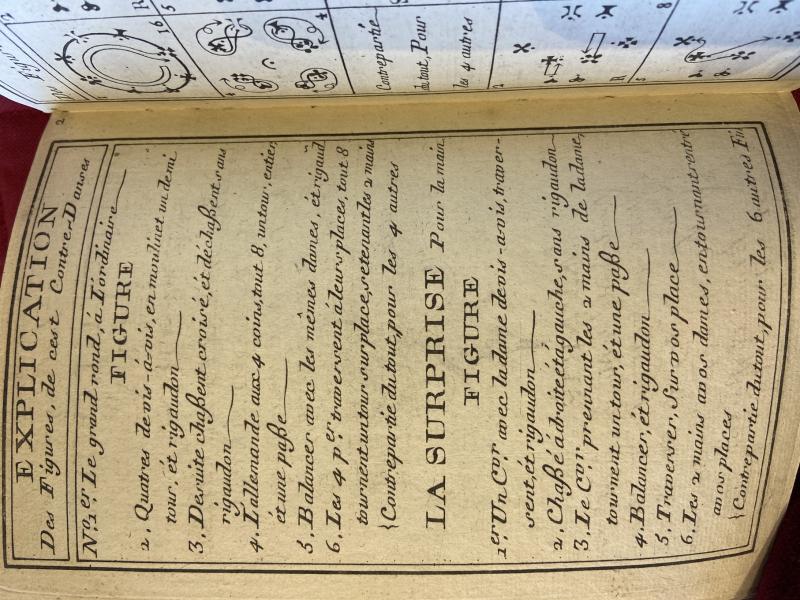 2
EXPLICATION
Des Figures, de cest Contre-Danses
No. 1er. Le grand rond, à l'ordinaire
FIGURE
2, Quatres de vis-à-vis, en moulinet un demi
tour, et rigaudon
3, De suite chaßent croisé, et déchaßent sans
rigaudon
4, L'allemande aux 4 coins, tout 8, un tour, entier,
et une paße
5, Balancer avec les mêmes dames, et rigaud
6, Les 4 per. traversent à leurs places, tout 8
tournent un tour sur place, se tenant les 2 mains
(Contrepartie du tout, pour les 4 autres
LA SURPRISE Pour la main
FIGURE
1er Un Cor. avec la dame de vis-a-vis, traver-
sent, et rigaudon
2, Chaßé à droite et a gauche, sans rigaudon
3, Le Cor. prennant les 2 mains de la dame,
tourment un tour, et une paße
4, Balancer, et rigaudon
5, Traverser, Sur vos place
6, Les 2 mains a vos dames, en tournant rentré
a vos places
(Contrepartie du tout, pour les 6 autres Fin
16
5
4
Contrepartie
du tout, Pour
les 4 autres
R
8